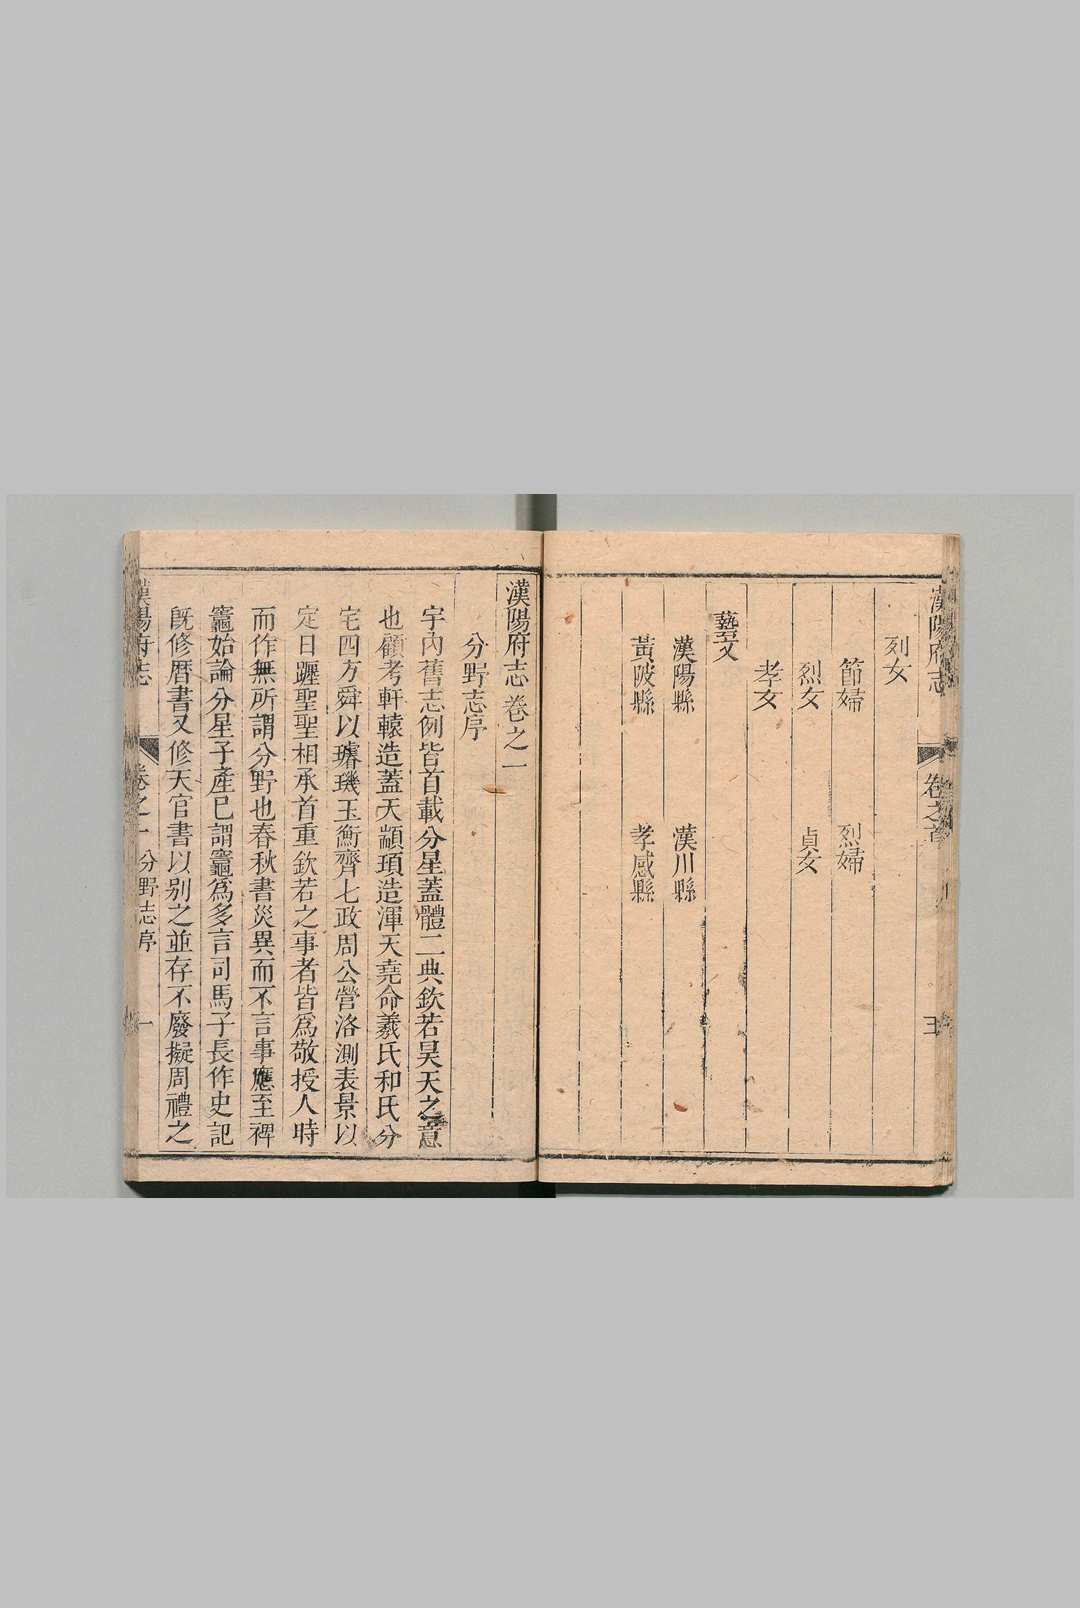 漢陽府志
卷之首
五
列女
節婦 烈婦
烈女 貞女
孝女
藝文
漢陽縣 漢川縣
黃陂縣 孝感縣
漢陽府志 卷之一
分野志序
宇內舊志例皆首載分星蓋體二典欽若昊天之意
也顧考軒轅造蓋天顓頊造渾天堯命羲氏和氏分
宅四方舜以璿璣玉衡齊七政周公營洛測表景以
定日躔聖聖相承首重欽若之事者皆爲敬授人時
而作無所謂分野也春秋書災異而不言事應至裨
竈始論分星子產已謂竈爲多言司馬子長作史記
旣修曆書又修天官書以別之並存不廢擬周禮之
漢陽府志
卷之一 分野志序
一